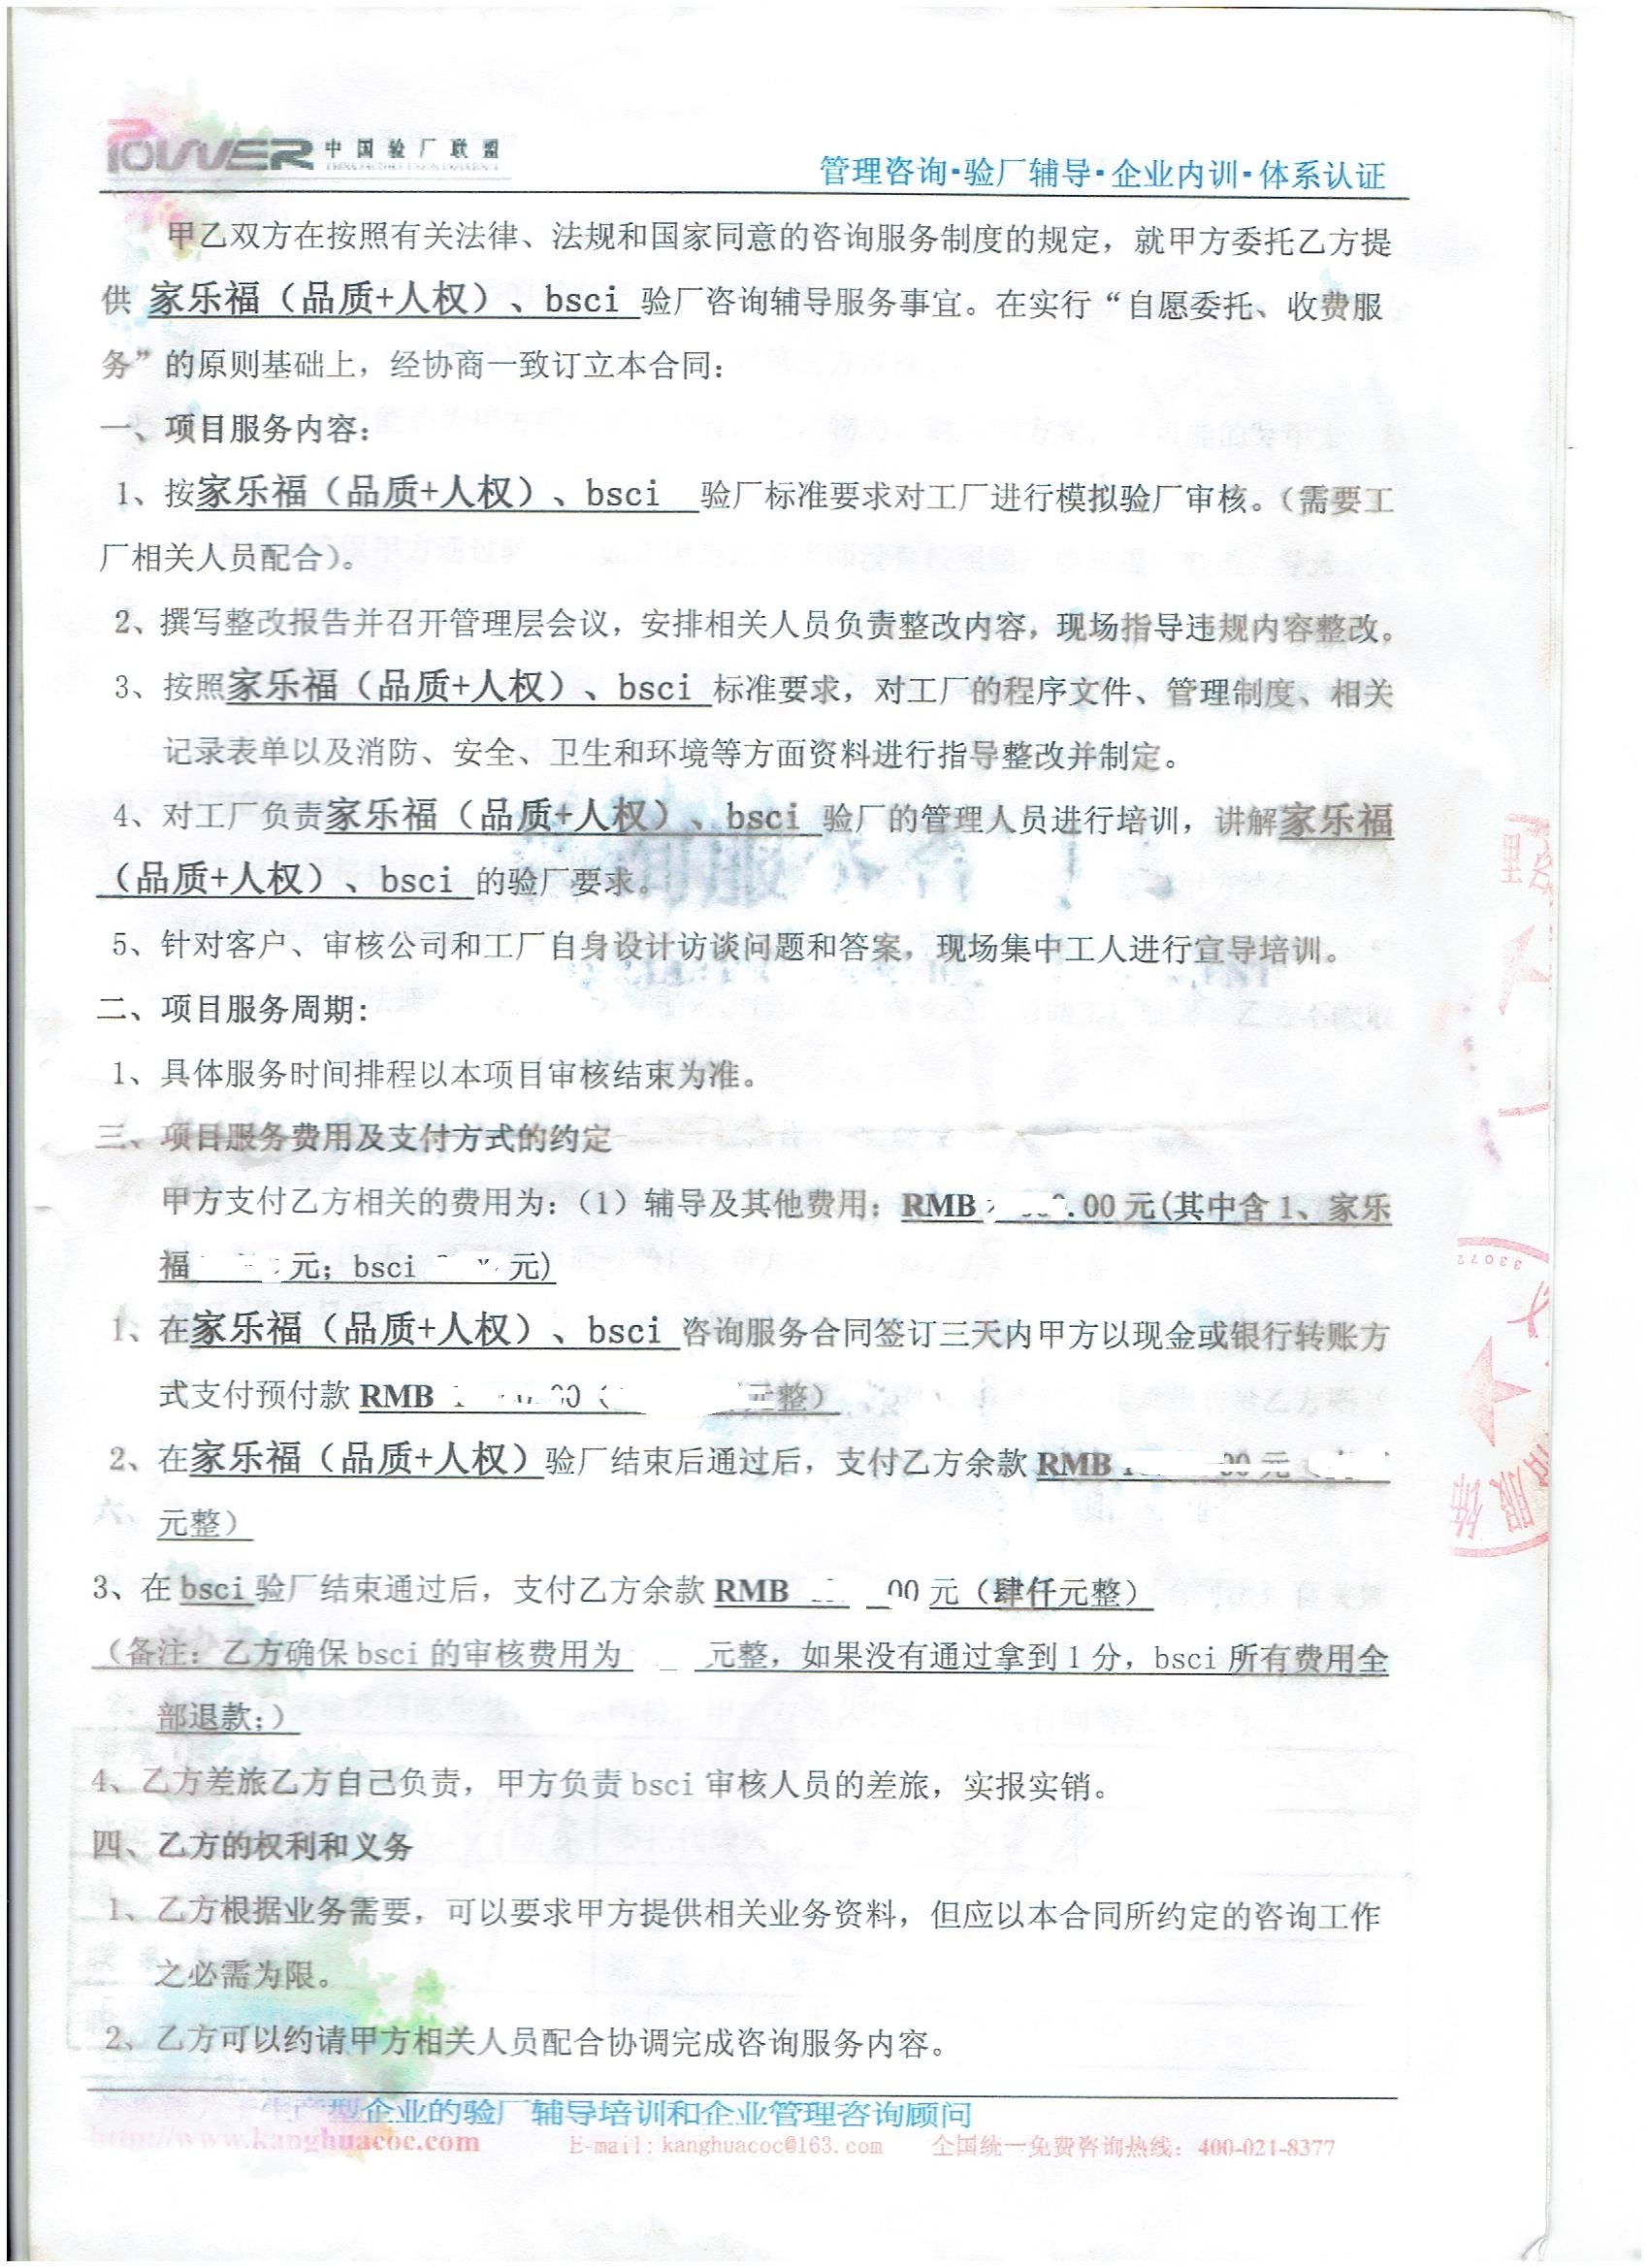 POWER 中国验厂联盟
管理咨询·验厂辅导·企业内训·体系认证
甲乙双方在按照有关法律、法规和国家同意的咨询服务制度的规定，就甲方委托乙方提
供 家乐福（品质+人权）、bsci 验厂咨询辅导服务事宜。在实行“自愿委托、收费服
务”的原则基础上，经协商一致订立本合同：
一、项目服务内容：
1、按家乐福（品质+人权）、bsci 验厂标准要求对工厂进行模拟验厂审核。（需要工
厂相关人员配合）。
2、撰写整改报告并召开管理层会议，安排相关人员负责整改内容，现场指导违规内容整改。
3、按照家乐福（品质+人权）、bsci 标准要求，对工厂的程序文件、管理制度、相关
记录表单以及消防、安全、卫生和环境等方面资料进行指导整改并制定。
4、对工厂负责家乐福（品质+人权）、bsci 验厂的管理人员进行培训，讲解家乐福
（品质+人权）、bsci 的验厂要求。
5、针对客户、审核公司和工厂自身设计访谈问题和答案，现场集中工人进行宣导培训。
二、项目服务周期：
1、具体服务时间排程以本项目审核结束为准。
三、项目服务费用及支付方式的约定
甲方支付乙方相关的费用为：（1）辅导及其他费用：RMB .00 元(其中含 1、家乐
福 元；bsci 元)
1、在家乐福（品质+人权）、bsci 咨询服务合同签订三天内甲方以现金或银行转账方
式支付预付款 RMB 元整）
2、在家乐福（品质+人权）验厂结束后通过后，支付乙方余款 RMB 00 元
元整）
3、在 bsci 验厂结束通过后，支付乙方余款 RMB 00 元（肆仟元整）
（备注：乙方确保 bsci 的审核费用为 元整，如果没有通过拿到 1 分，bsci 所有费用全
部退款；）
4、乙方差旅乙方自己负责，甲方负责 bsci 审核人员的差旅，实报实销。
四、乙方的权利和义务
1、乙方根据业务需要，可以要求甲方提供相关业务资料，但应以本合同所约定的咨询工作
之必需为限。
2、乙方可以约请甲方相关人员配合协调完成咨询服务内容。
生产型企业的验厂辅导培训和企业管理咨询顾问
http://www.kanghuacoc.com E-mail: kanghuacoc@163.com 全国统一免费咨询热线：400-021-8377
33072
服饰